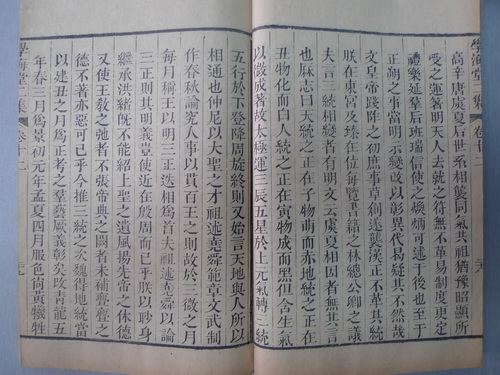 高辛唐虞夏后世系相襲同氣共祖猶豫昭顯所
受之運著明天人去就之符無不革易制度更定
禮樂延羣后班瑞信使之煥炳可述于後也至于
正朔之事當明示變改以彰異代曷疑其不然哉
文皇帝踐阼之初庶事草創遂襲漢正不革其統
朕在東宮及臻在位每覽書籍之林總公卿之議
夫言三統相變者有明文云虞夏相因者無其言
也厤志曰天統之正在子物萌而赤地統之正在
丑物化而白人統之正在寅物成而黑但含生氣
以微成著故太極運三辰五星於上元氣轉三統
五行於下登降周旋終則又始言天地與人所以
相通也仲尼以大聖之才祖述堯舜範章文武制
作春秋論究人事以貫百王之則故於三微之月
每月稱王以明三正迭相爲首夫祖述堯舜以論
三正則其明義豈使近在殷周而已乎朕以眇身
繼承洪緒既不能紹上聖之遺風揚先帝之休德
又使王教之弛者不張帝典之闕者未補亹亹之
德不著亦惡可已乎今推三統之次魏得地統當
以建丑之月爲正考之羣藝厥義彰矣改青龍五
年春三月爲景初元年孟夏四月服色尚黃犧牲
學海堂二集
卷十二